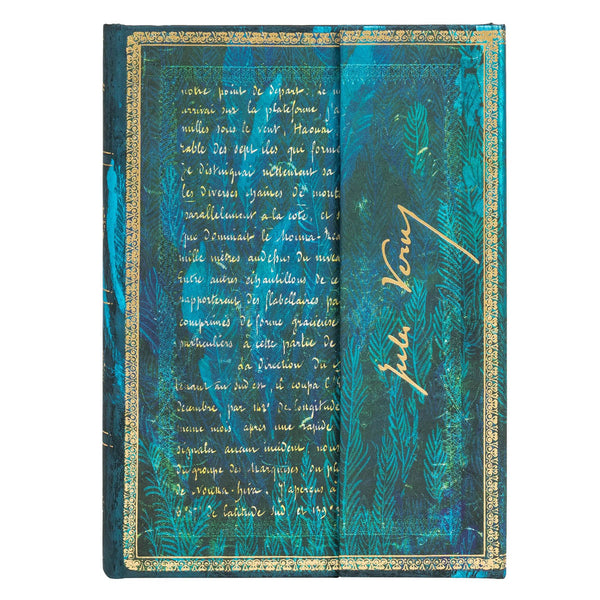 notre point de départ. Le m
arrivai sur la plateforme j'a
milles sous le vent, Haouaï
rable des sept iles qui forme
je distinguai nettement sa
les diverses chaines de mont
parallelement a la cote, et s
que dominait le Mouna-Réa
mille mètres audessus du nivea
Entre autres échantillons de ce
rapporterent des flabellaires pa
comprimés de forme gracieuse
particuliers à cette partie de
La direction du
tenant au sud est, il coupa l'É
décembre par 142° de longitude
meme mois, après une rapide
signala aucun incident, nous
du groupe des Marquises, ou pl
de Nouka-hiva. J'aperçus a
de latitude sud et 139°
Jules Verne